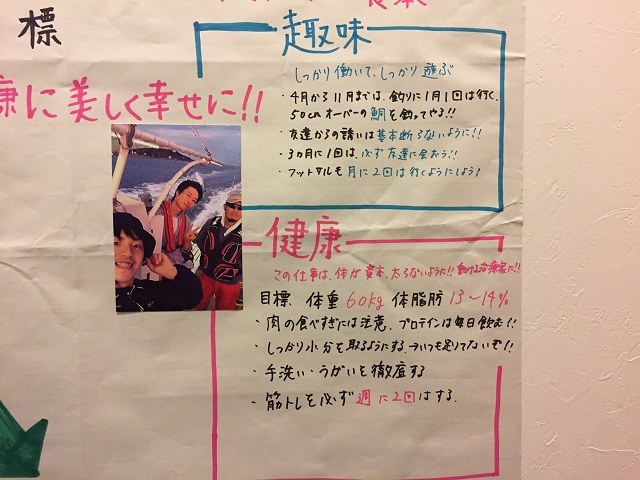 標
康に美しく幸せに!!
趣味
しっかり働いて、しっかり遊ぶ
・4月から11月までは、釣りに1月1回は行く、
50cmオーバーの鯛を釣ってやる!!
・友達からの誘いは基本断らないように!!
・3カ月に1回は、必ず友達に会おう!!
・フットサルも月に2回は行くようにしよう!
健康
この仕事は、体が資本、太らないように!!
目標 体重 60kg 体脂肪 13〜14%
・肉の食べすぎには注意、プロテインは毎日飲む!!
・しっかり水分を取るようにする、→いつも足りてないぞ!!
・手洗い・うがいを徹底する
・筋トレを必ず週に2回はする.